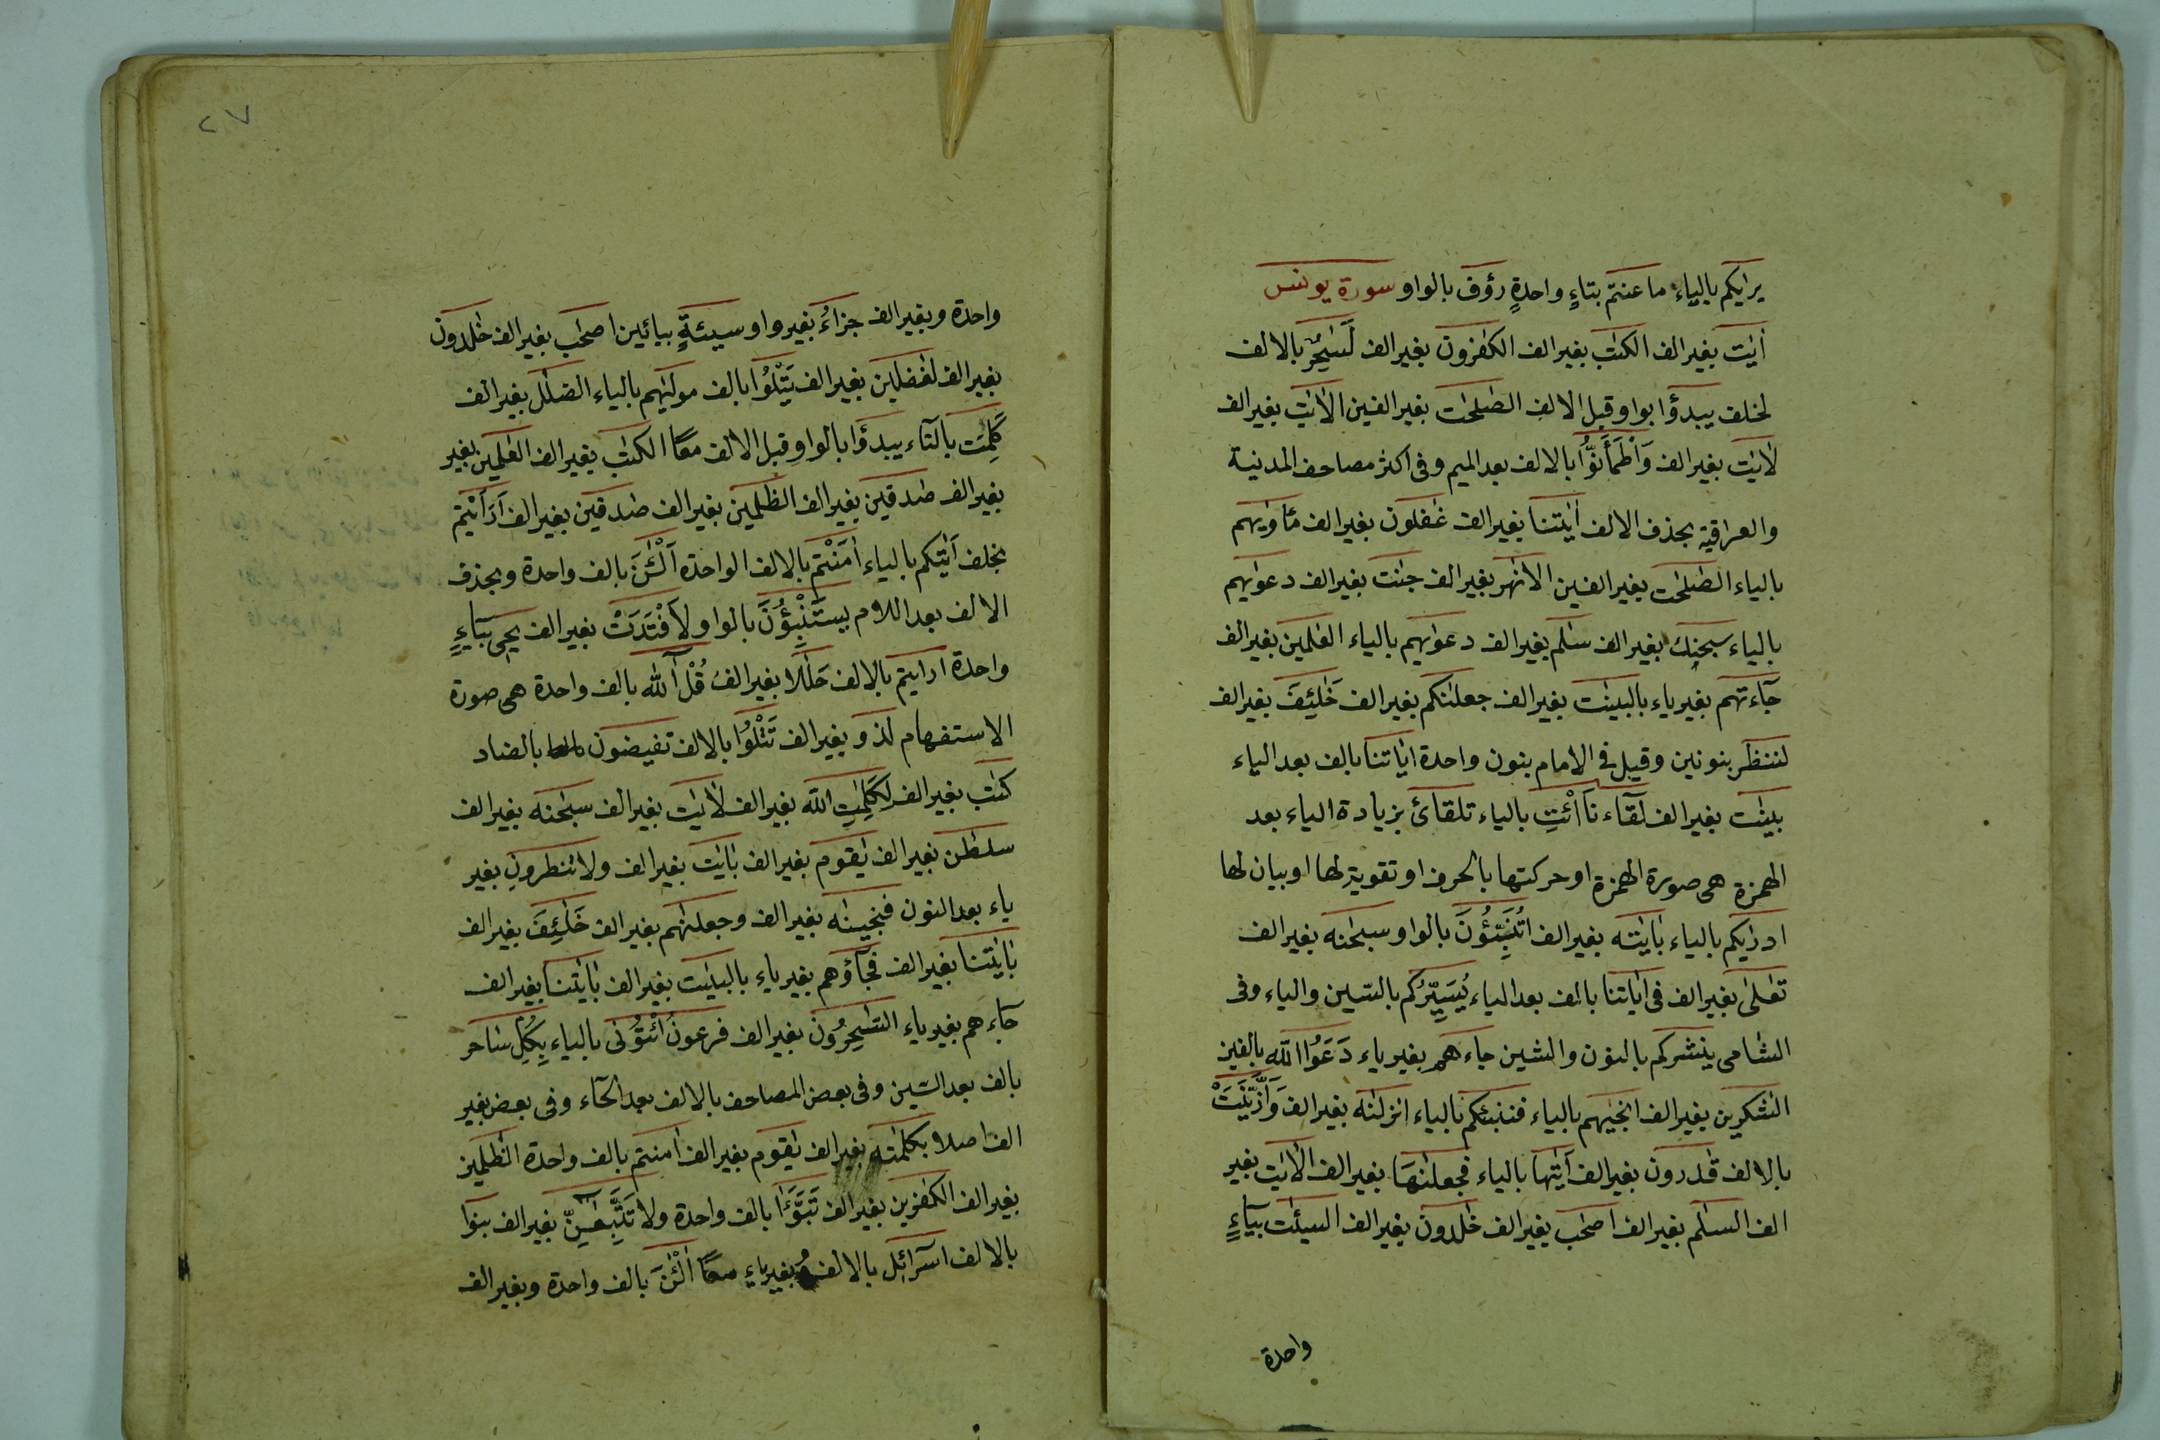 يرايكم بالياء ما عنتم بتاءٍ واحدةٍ رؤف بالواو سورة يونس
اٰيٰت بغير الف الكتٰب بغير الف الكٰفرون بغير الف لَسٰحِرٌ بالالف
لخلف يبدؤا بواو قبل الالف الصّٰلحٰت بغير الفين الاٰيٰت بغير الف
لاٰيٰت بغير الف وَاطْمَأَنُّوا بالالف بعد الميم وفى اكثر مصاحف المدنية
والعراقية بحذف الالف اٰيٰتنا بغير الف غٰفلون بغير الف مأويهم
بالياء الصّٰلحٰت بغير الفين الانهٰر بغير الف جنّٰت بغير الف دعوٰيهم
بالياء سبحٰنك بغير الف سلٰم بغير الف دعوٰيهم بالياء العٰلمين بغير الف
جآءتهم بغير ياء بالبينٰت بغير الف جعلنٰكم بغير الف خَلٰئِفَ بغير الف
لننظر بنونين وقيل فى الامام بنون واحدة اياتنا بالف بعد الياء
بينٰت بغير الف لقآءنا ائْتِ بالياء تلقائ بزيادة الياء بعد
الهمزة هى صورة الهمزة او حركتها بالحرف او تقوية لها او بيان لها
ادرٰيكم بالياء باٰيٰته بغير الف اتُنَبِّئُونَ بالواو سبحٰنه بغير الف
تعٰلى بغير الف فى اياتنا بالف بعد الياء يُسَيِّرُكم بالسين والياء وفى
الشامى ينشركم بالنون والشين جاءهم بغير ياء دَعَوُا الله بالفين
الشٰكرين بغير الف انجٰيهم بالياء فننبئكم بالياء انزلنٰه بغير الف وَازَّيَّنَتْ
بالالف قٰدرون بغير الف اتٰيها بالياء فجعلنٰها بغير الف الاٰيٰت بغير
الف السلٰم بغير الف اصحٰب بغير الف خٰلدون بغير الف السيئٰت بياءٍ
واحدة
واحدة وبغير الف جزاءُ بغير واو سيئةٍ بيائين اصحٰب بغير الف خٰلدون
بغير الف لغٰفلين بغير الف تَتْلُوا بالف مولٰيهم بالياء الضلٰل بغير الف
كَلِمٰت بالتاء يبدؤا بالواو قبل الالف معًا الكتٰب بغير الف العٰلمين بغير
بغير الف صٰدقين بغير الف الظٰلمين بغير الف صٰدقين بغير الف اَرَاَيْتم
بخلف اَتٰيكم بالياء اٰمَنْتم بالالف الواحدة آلْئٰنَ بالف واحدة وبحذف
الالف بعد اللام يستَنْبِؤُنَ بالواو لاَفْتَدَتْ بغير الف يحى بياءٍ
واحدة ارايتم بالالف حَلٰلا بغير الف قُلْ آلله بالف واحدة هى صورة
الاستفهام لذو بغير الف تَتْلُوا بالالف تفيضون بالضاد
كتٰب بغير الف لِكَلِمٰتِ الله بغير الف لاٰيٰت بغير الف سبحٰنه بغير الف
سلطٰن بغير الف يٰقوم بغير الف باٰيٰت بغير الف ولا تنظرونِ بغير
ياء بعد النون فنجينٰه بغير الف وجعلنٰهم بغير الف خَلٰئِفَ بغير الف
باٰيٰتنا بغير الف فجآؤهم بغير ياء بالبينٰت بغير الف باٰيٰتنا بغير الف
جآءهم بغير ياء السّٰحِرُون بغير الف فرعونُ ائْتُونى بالياء بِكُلِّ ساحر
بالف بعد السّين وفى بعض المصاحف بالالف بعد الحآء وفى بعض بغير
الف اصلا بكلمٰته بغير الف يٰقوم بغير الف اٰمنتم بالف واحدة الظّٰلمين
بغير الف الكٰفرين بغير الف تَبَوَّءَا بالف واحدة ولا تَتَّبِعٰنِّ بغير الف بنوا
بالالف اسرآئِل بالالف وبغير ياءٍ معًا الْئٰنَ بالف واحدة وبغير الف